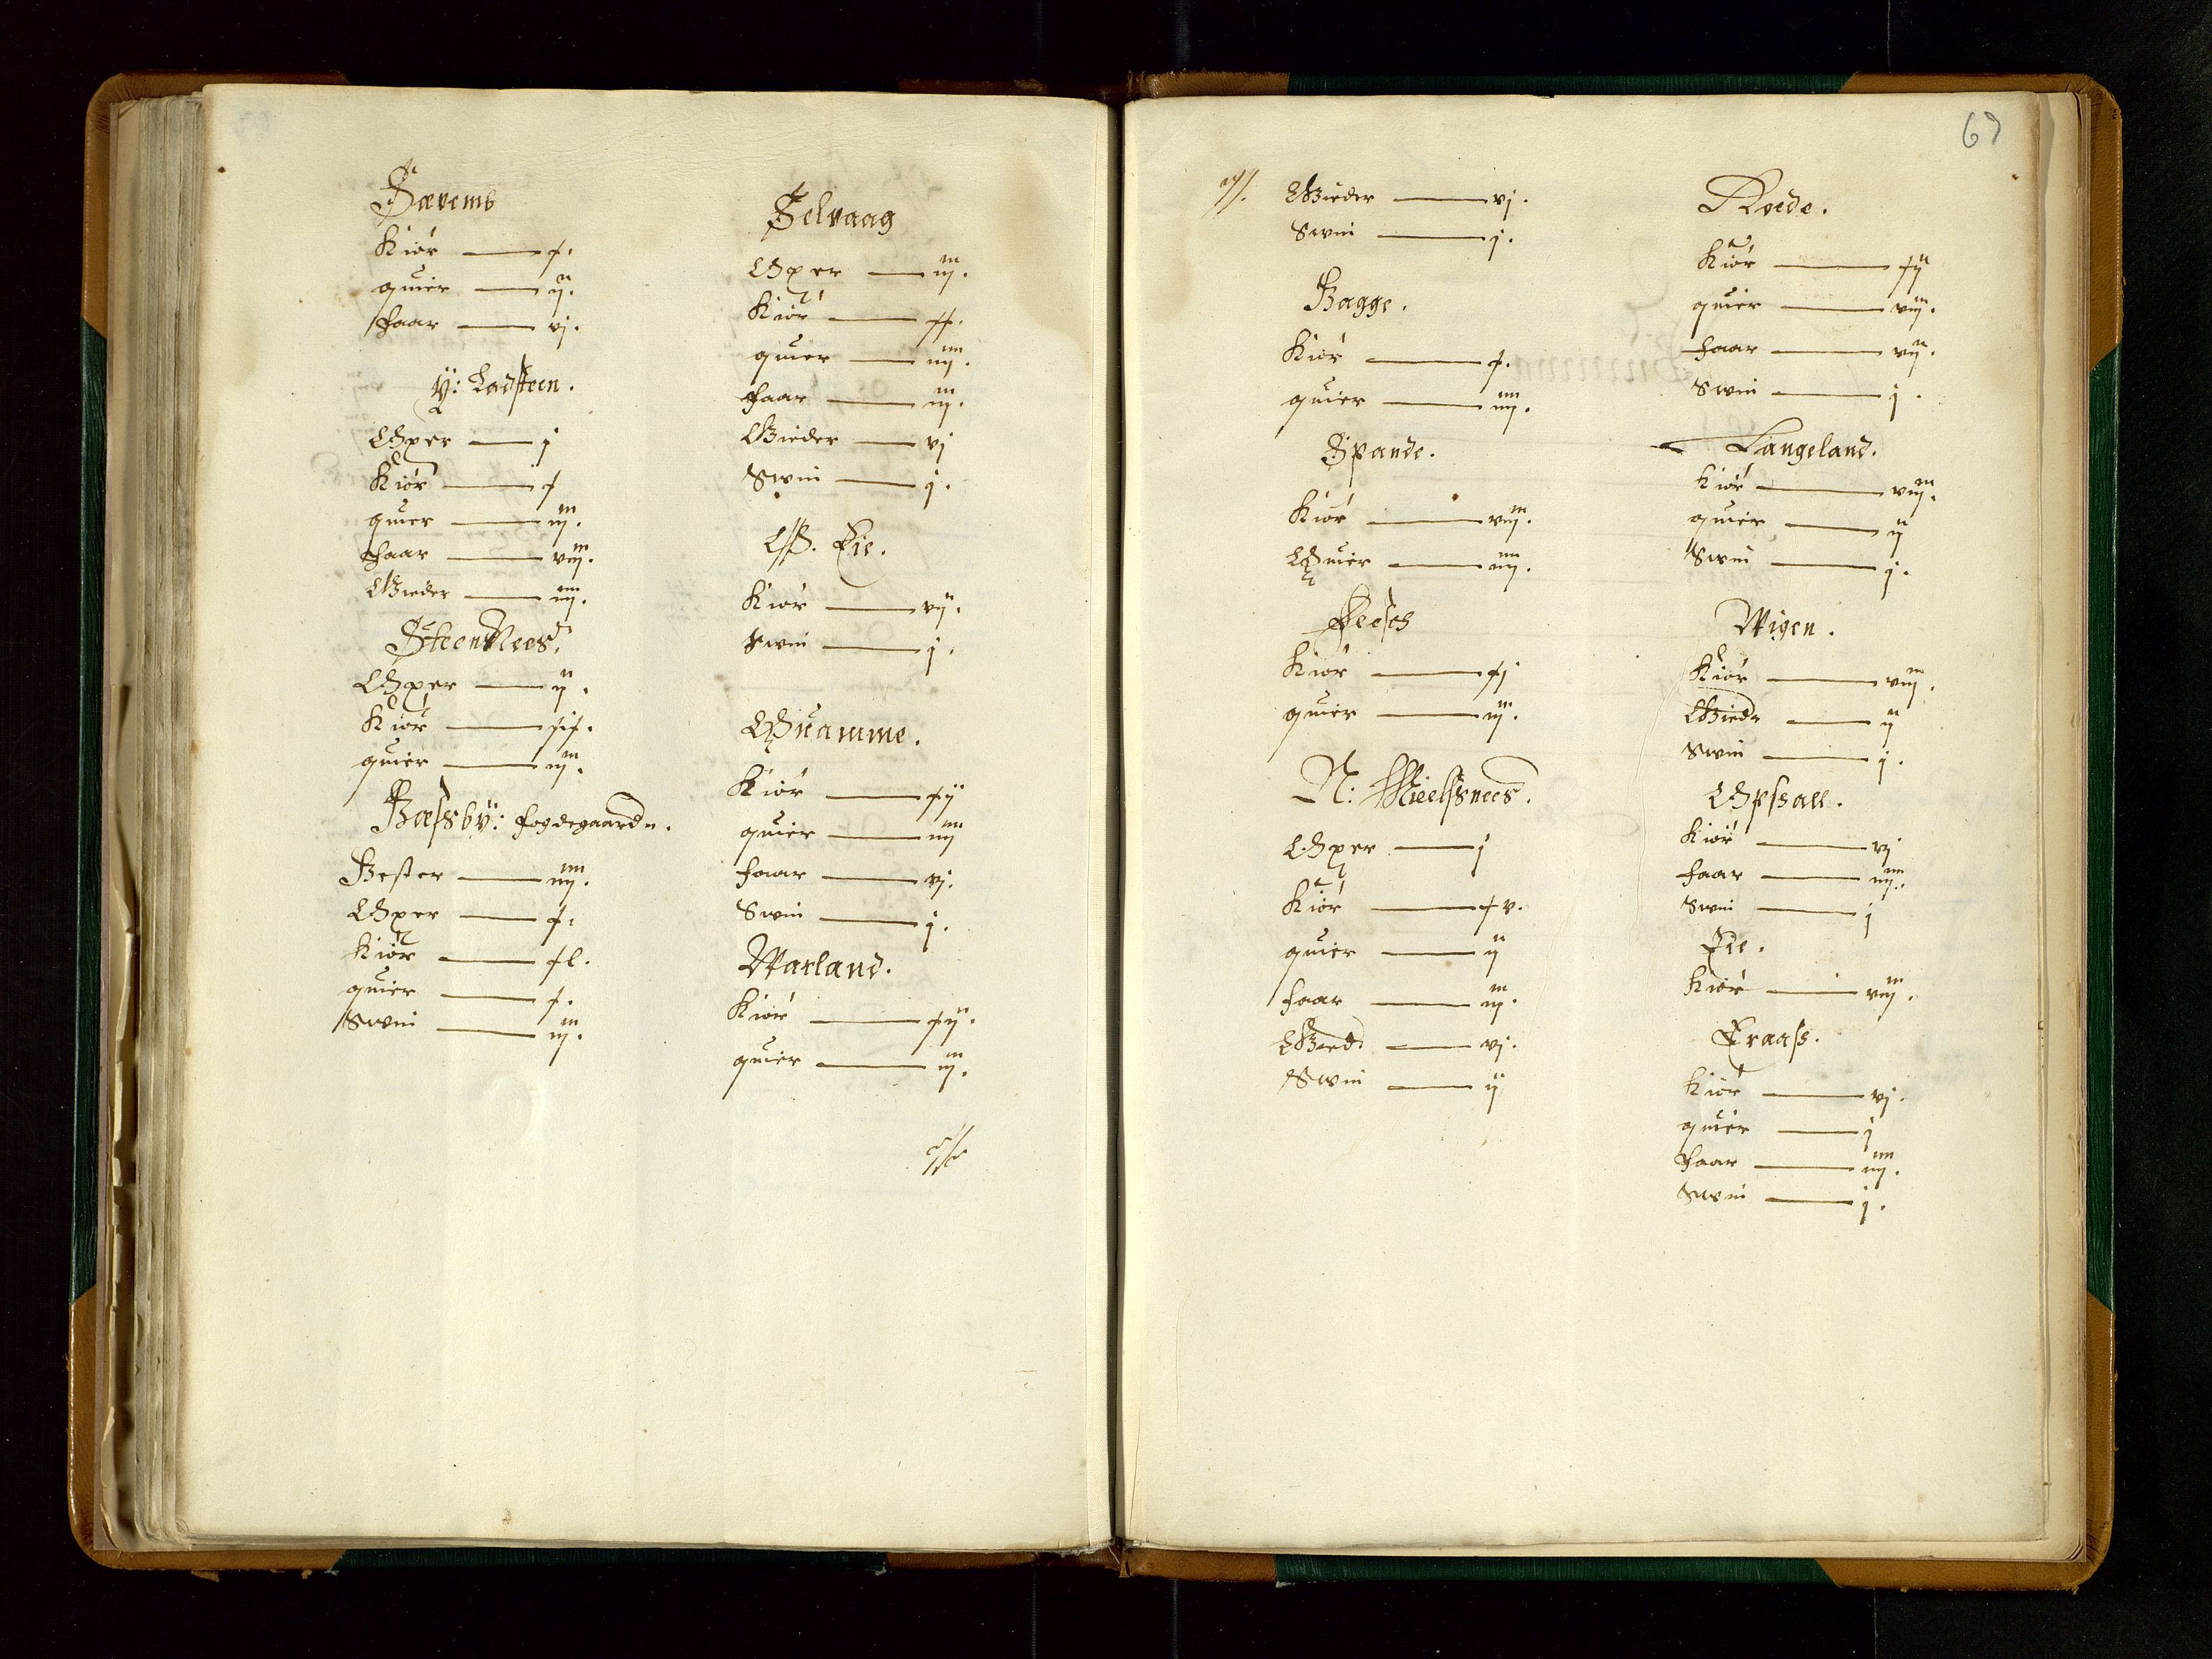 Sævemb
Kiör — x.
quier — ij.
faar — vj.
Ÿ: Ladsteen.
Øxer — j
Kiör — x
quier — iij.
faar — viij.
Gieder — iiij.
Steen Nees.
Øxer — ij.
Kiör — xix.
quier — iij.
Bæssbÿ: fogdegaardn.
Hester — iiij.
Øxer — x.
Kiör — xl.
quier — x.
Swin — iij.
Selvaag
Øxer — iij.
Kiör — xx.
quier — iiij.
faar — iij.
Gieder — vj
Swin — j.
Eie.
Kiör — vij.
Swin — j.
Quamme.
Kiör — xij
quier — iiij
faar — vj.
Swin — j.
Warland.
Kiör — xij.
quier — iij.
67
Gieder — vj.
Swin — j.
Hagge.
Kiör — x.
quier — iiij.
Spande.
Kiör — viij.
Quier — iiij.
Kiör — xj
quier — iij.
N: Nielssnees.
Øxer — j
Kiör — xv.
quier — ij
faar — iij.
Gied — vj.
Swin — ij
Roede.
Kiör — xij
quier — viij.
faar — vij.
Swin — j.
Langeland.
Kiör — viij.
quier — ij
Swin — j.
Wigen.
Kiör — viij.
Giedr — ij
Swin — j.
Opsall.
Kiör — vj
faar — iiij.
Swin — j
Eie.
Kiör — viij.
Eraass.
Kiör — vj.
quier — j
faar — iiij.
Swin — j.